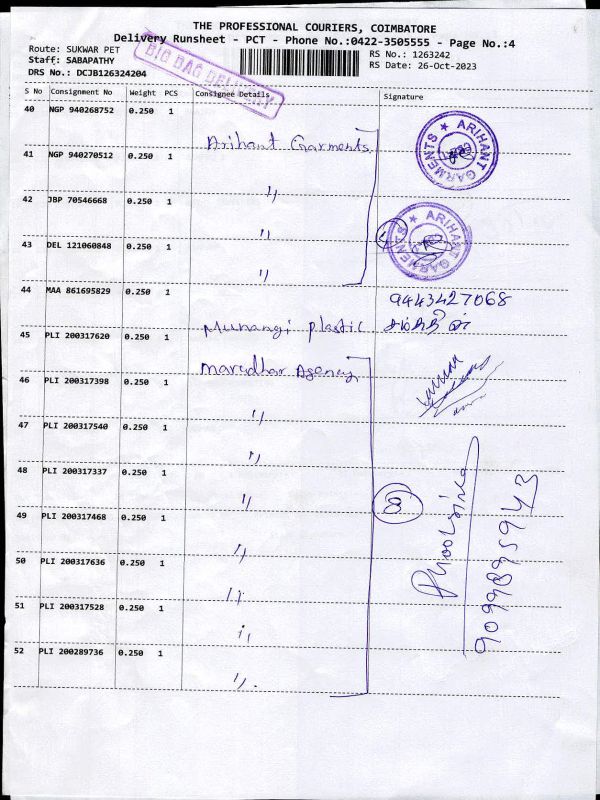 THE PROFESSIONAL COURIERS, COIMBATORE
Delivery Runsheet - PCT - Phone No.:0422-3505555 - Page No.:4
Route: SUKWAR PET
RS No.: 1263242
Staff: SABAPATHY
RS Date: 26-Oct-2023
DRS No.: DCJB126324204
BIG BAG DELIVERY
S No Consignment No Weight PCS Consignee Details Signature
40 NGP 940268752 0.250 1 Arihant Garments.
ARIHANT GARMENTS ★
41 NGP 940270512 0.250 1 〃
42 JBP 70546668 0.250 1 〃
ARIHANT GARMENTS ★
43 DEL 121060848 0.250 1 〃
44 MAA 861695829 0.250 1 Munangi plastic 9443427068
45 PLI 200317620 0.250 1 Marudhar Agency
46 PLI 200317398 0.250 1 〃
47 PLI 200317540 0.250 1 〃
48 PLI 200317337 0.250 1 〃
8
49 PLI 200317468 0.250 1 〃
50 PLI 200317636 0.250 1 〃
51 PLI 200317528 0.250 1 〃
52 PLI 200289736 0.250 1 〃